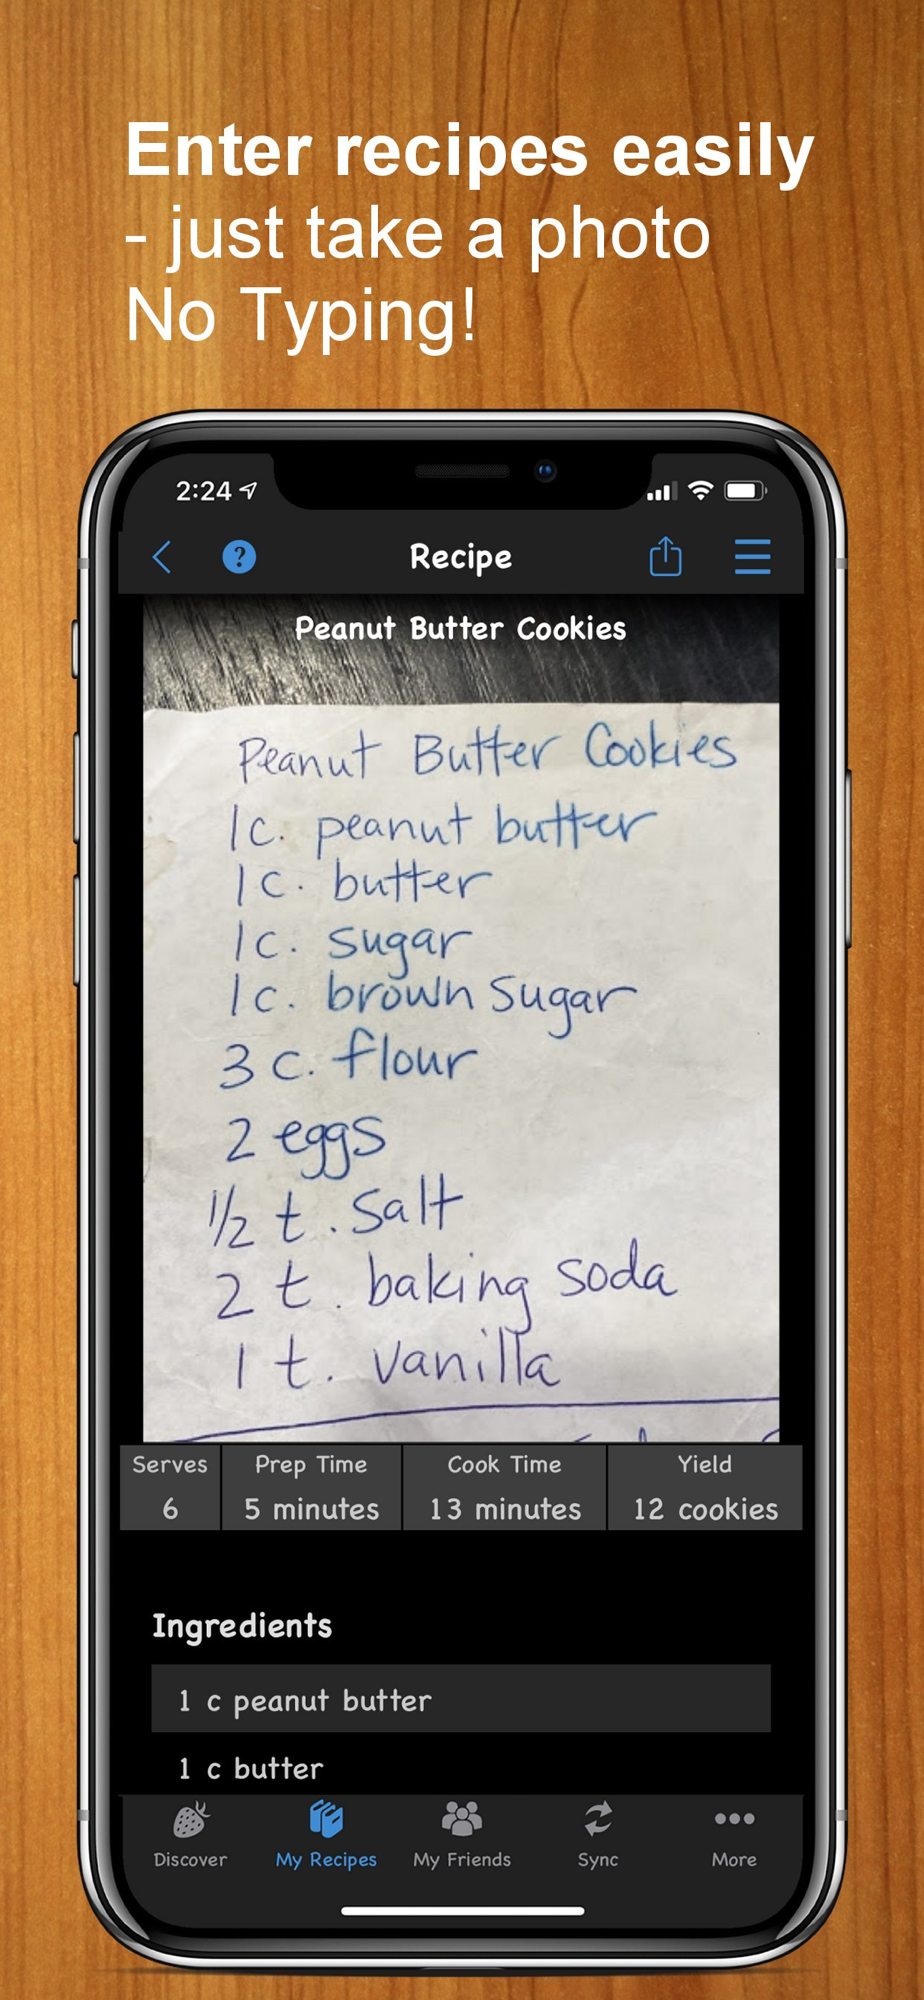 Enter recipes easily
- just take a photo
No Typing!
2:24
Recipe
Peanut Butter Cookies
Peanut Butter Cookies
1c. peanut butter
1c. butter
1c. sugar
1c. brown sugar
3 c. flour
2 eggs
1/2 t. salt
2 t. baking soda
1 t. vanilla
Serves Prep Time Cook Time Yield
6 5 minutes 13 minutes 12 cookies
Ingredients
1 c peanut butter
1 c butter
Discover My Recipes My Friends Sync More